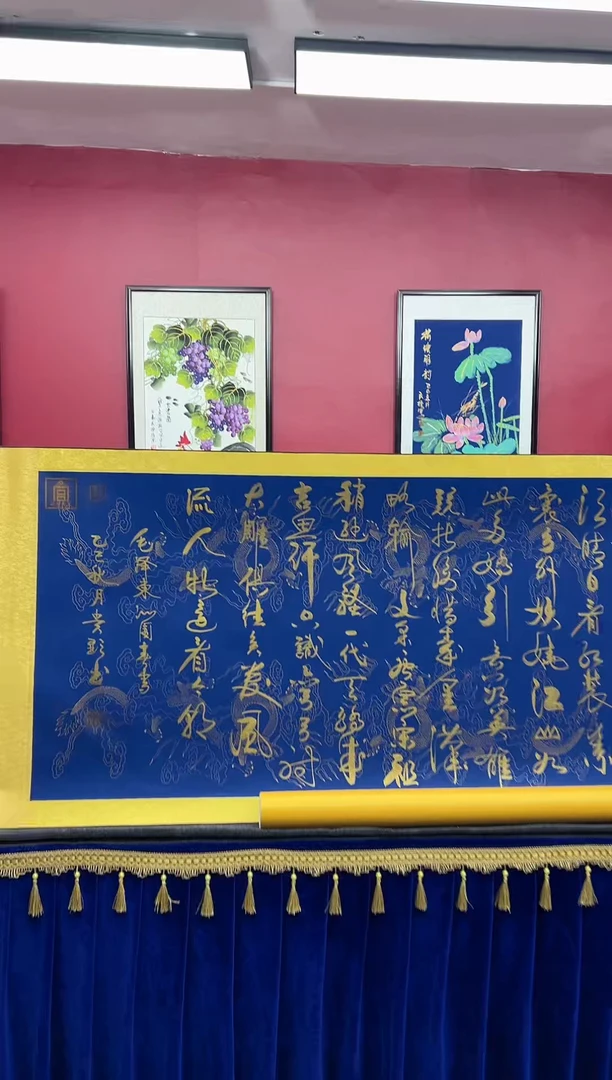 须晴日看红装素
裹分外妖娆江山如
此多娇引无数英雄
竞折腰惜秦皇漢
略输文采唐宗宋祖
稍逊风骚一代天骄成
吉思汗只识弯弓射
大雕俱往矣数风
流人物还看今朝
毛泽东沁园春雪
乙巳秋月